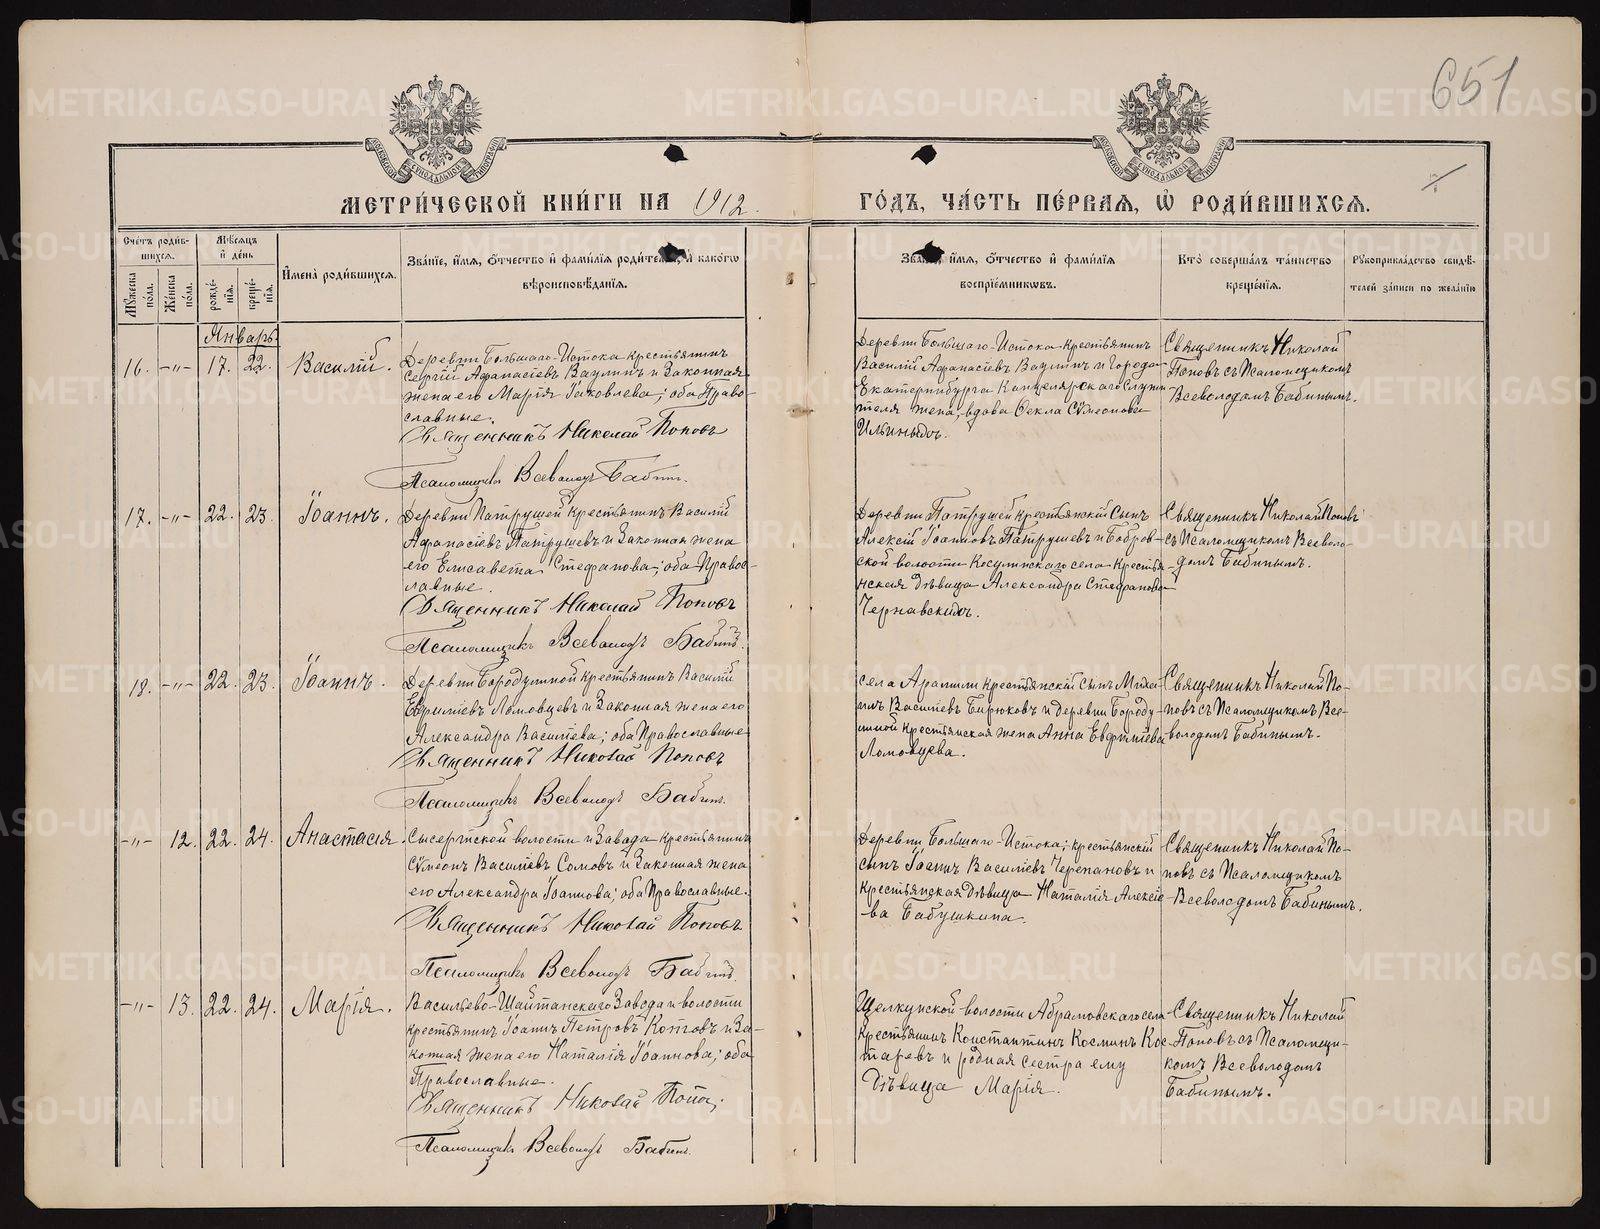 651
МЕТРИ́ЧЕСКОЙ КНИ́ГИ НА 1912.
ГО́ДЪ, ЧА́СТЬ ПЕ́РВАѦ, Ѡ҆ РОДИ́ВШИХСѦ.
Сче́тъ роди́в-
шихсѧ.
Мꙋ́жеска по́ла.
Же́нска по́ла.
Мѣ́сѧцъ
и҆ де́нь
рожде́-
нїѧ.
креще́-
нїѧ.
И҆мена̀ роди́вшихсѧ.
Зва́нїе, и҆́мѧ, ѻ҆́тчество и҆ фами́лїѧ роди́телей, и҆ како́гѡ
вѣроисповѣ́данїѧ.
и҆́мѧ, ѻ҆́тчество и҆ фами́лїѧ
воспрїе́мникѡвъ.
Кто̀ соверша́лъ та́инство
креще́нїѧ.
Рꙋкоприкла́дство свидѣ́-
телей за́писи по жела́нїю
Январь.
16. -"- 17. 22. Василій.
Деревни Большаго-Истока крестьянинъ
Сергій Аѳанасіевъ Ваулинъ и законная
жена его Марія Іаковлева; оба Право-
славные.
Священникъ Николай Поповъ
Псаломщикъ Всеволодъ Бабинъ.
Деревни Большаго-Истока крестьянинъ
Василій Аѳанасіевъ Ваулинъ и города
Екатеринбурга Канцелярскаго Служи
теля жена, вдова Ѳекла Сѵмеонова
Ильиныхъ.
Священникъ Николай
Поповъ съ Псаломщикомъ
Всеволодомъ Бабинымъ.
17. -"- 22. 23. Іоаннъ.
Деревни Патрушей крестьянинъ Василій
Аѳанасіевъ Патрушевъ и законная жена
его Елисавета Стефанова; оба Правос-
лавные.
Священникъ Николай Поповъ
Псаломщикъ Всеволодъ Бабинъ.
Деревни Патрушей крестьянскій сынъ
Алексій Іоанновъ Патрушевъ и Бобров-
ской волости Косулинскаго села Крестья-
нская дѣвица Александра Стефанова
Чернавскихъ.
Священникъ Николай Поповъ
съ Псаломщикомъ Всеволо-
домъ Бабинымъ.
18. -"- 22. 23. Іоаннъ.
Деревни Бородулиной крестьянинъ Василій
Евѳиміевъ Ломовцевъ и законная жена его
Александра Васильева; оба Православные
Священникъ Николай Поповъ
Псаломщикъ Всеволодъ Бабинъ.
села Арамили крестьянскій сынъ Миха-
илъ Василіевъ Бирюковъ и деревни Бороду-
линой крестьянская жена Анна Евѳиміева
Ломовцева.
Священникъ Николай По-
повъ съ Псаломщикомъ Все-
володомъ Бабинымъ.
-"- 12. 22. 24. Анастасія.
Сысертской волости и завода крестьянинъ
Сѵмеонъ Василіевъ Сомовъ и законная жена
его Александра Іоаннова; оба Православные.
Священникъ Николай Поповъ
Псаломщикъ Всеволодъ Бабинъ.
Деревни Большаго-Истока; крестьянскій
сынъ Іоаннъ Василіевъ Черепановъ и
крестьянская дѣвица Наталія Алексіе
ва Бабушкина.
Священникъ Николай По-
повъ съ Псаломщикомъ
Всеволодомъ Бабинымъ.
-"- 13. 22. 24. Марія.
Васильево-Шайтанскаго Завода и волости
крестьянинъ Іоаннъ Петровъ Котовъ и за-
конная жена его Наталія Іоаннова; оба
Православные.
Священникъ Николай Поповъ
Псаломщикъ Всеволодъ Бабинъ.
Щелкунской волости Абрамовскаго села
крестьянинъ Константинъ Косминъ Кос-
таревъ и родная сестра ему
дѣвица Марія.
Священникъ Николай
Поповъ съ Псаломщи-
комъ Всеволодомъ
Бабинымъ.
METRIKI.GASO-URAL.RU